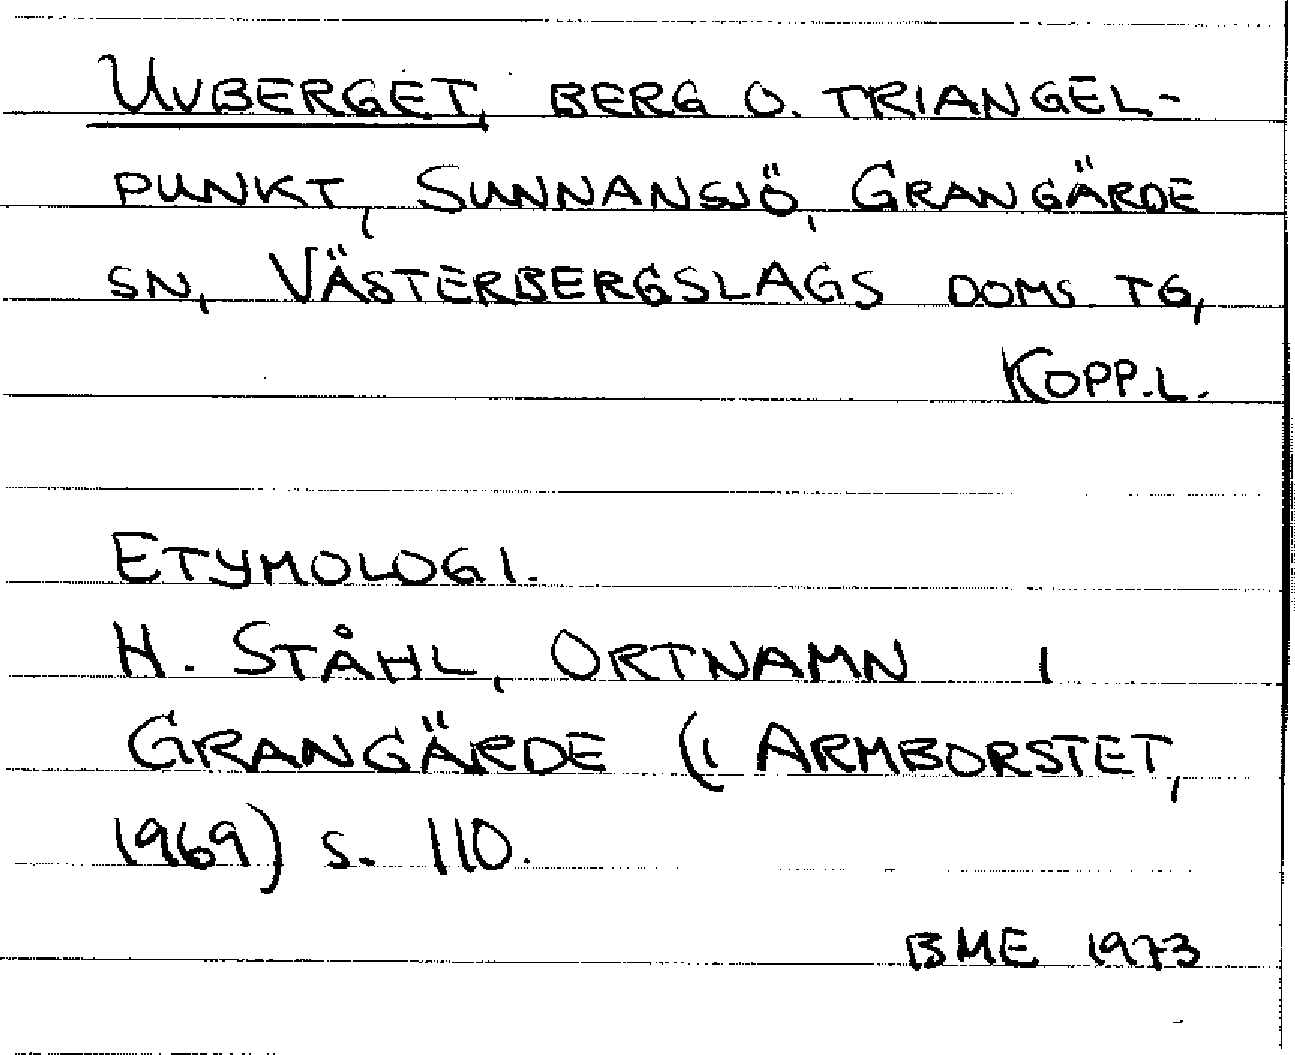 UVBERGET, BERG O. TRIANGEL-
PUNKT, SUNNANSJÖ, GRANGÄRDE
SN, VÄSTERBERGSLAGS DOMS. TG,
KOPP.L.
ETYMOLOGI.
H. STÅHL, ORTNAMN I
GRANGÄRDE (I ARMBORSTET,
1969) S. 110.
BME 1973